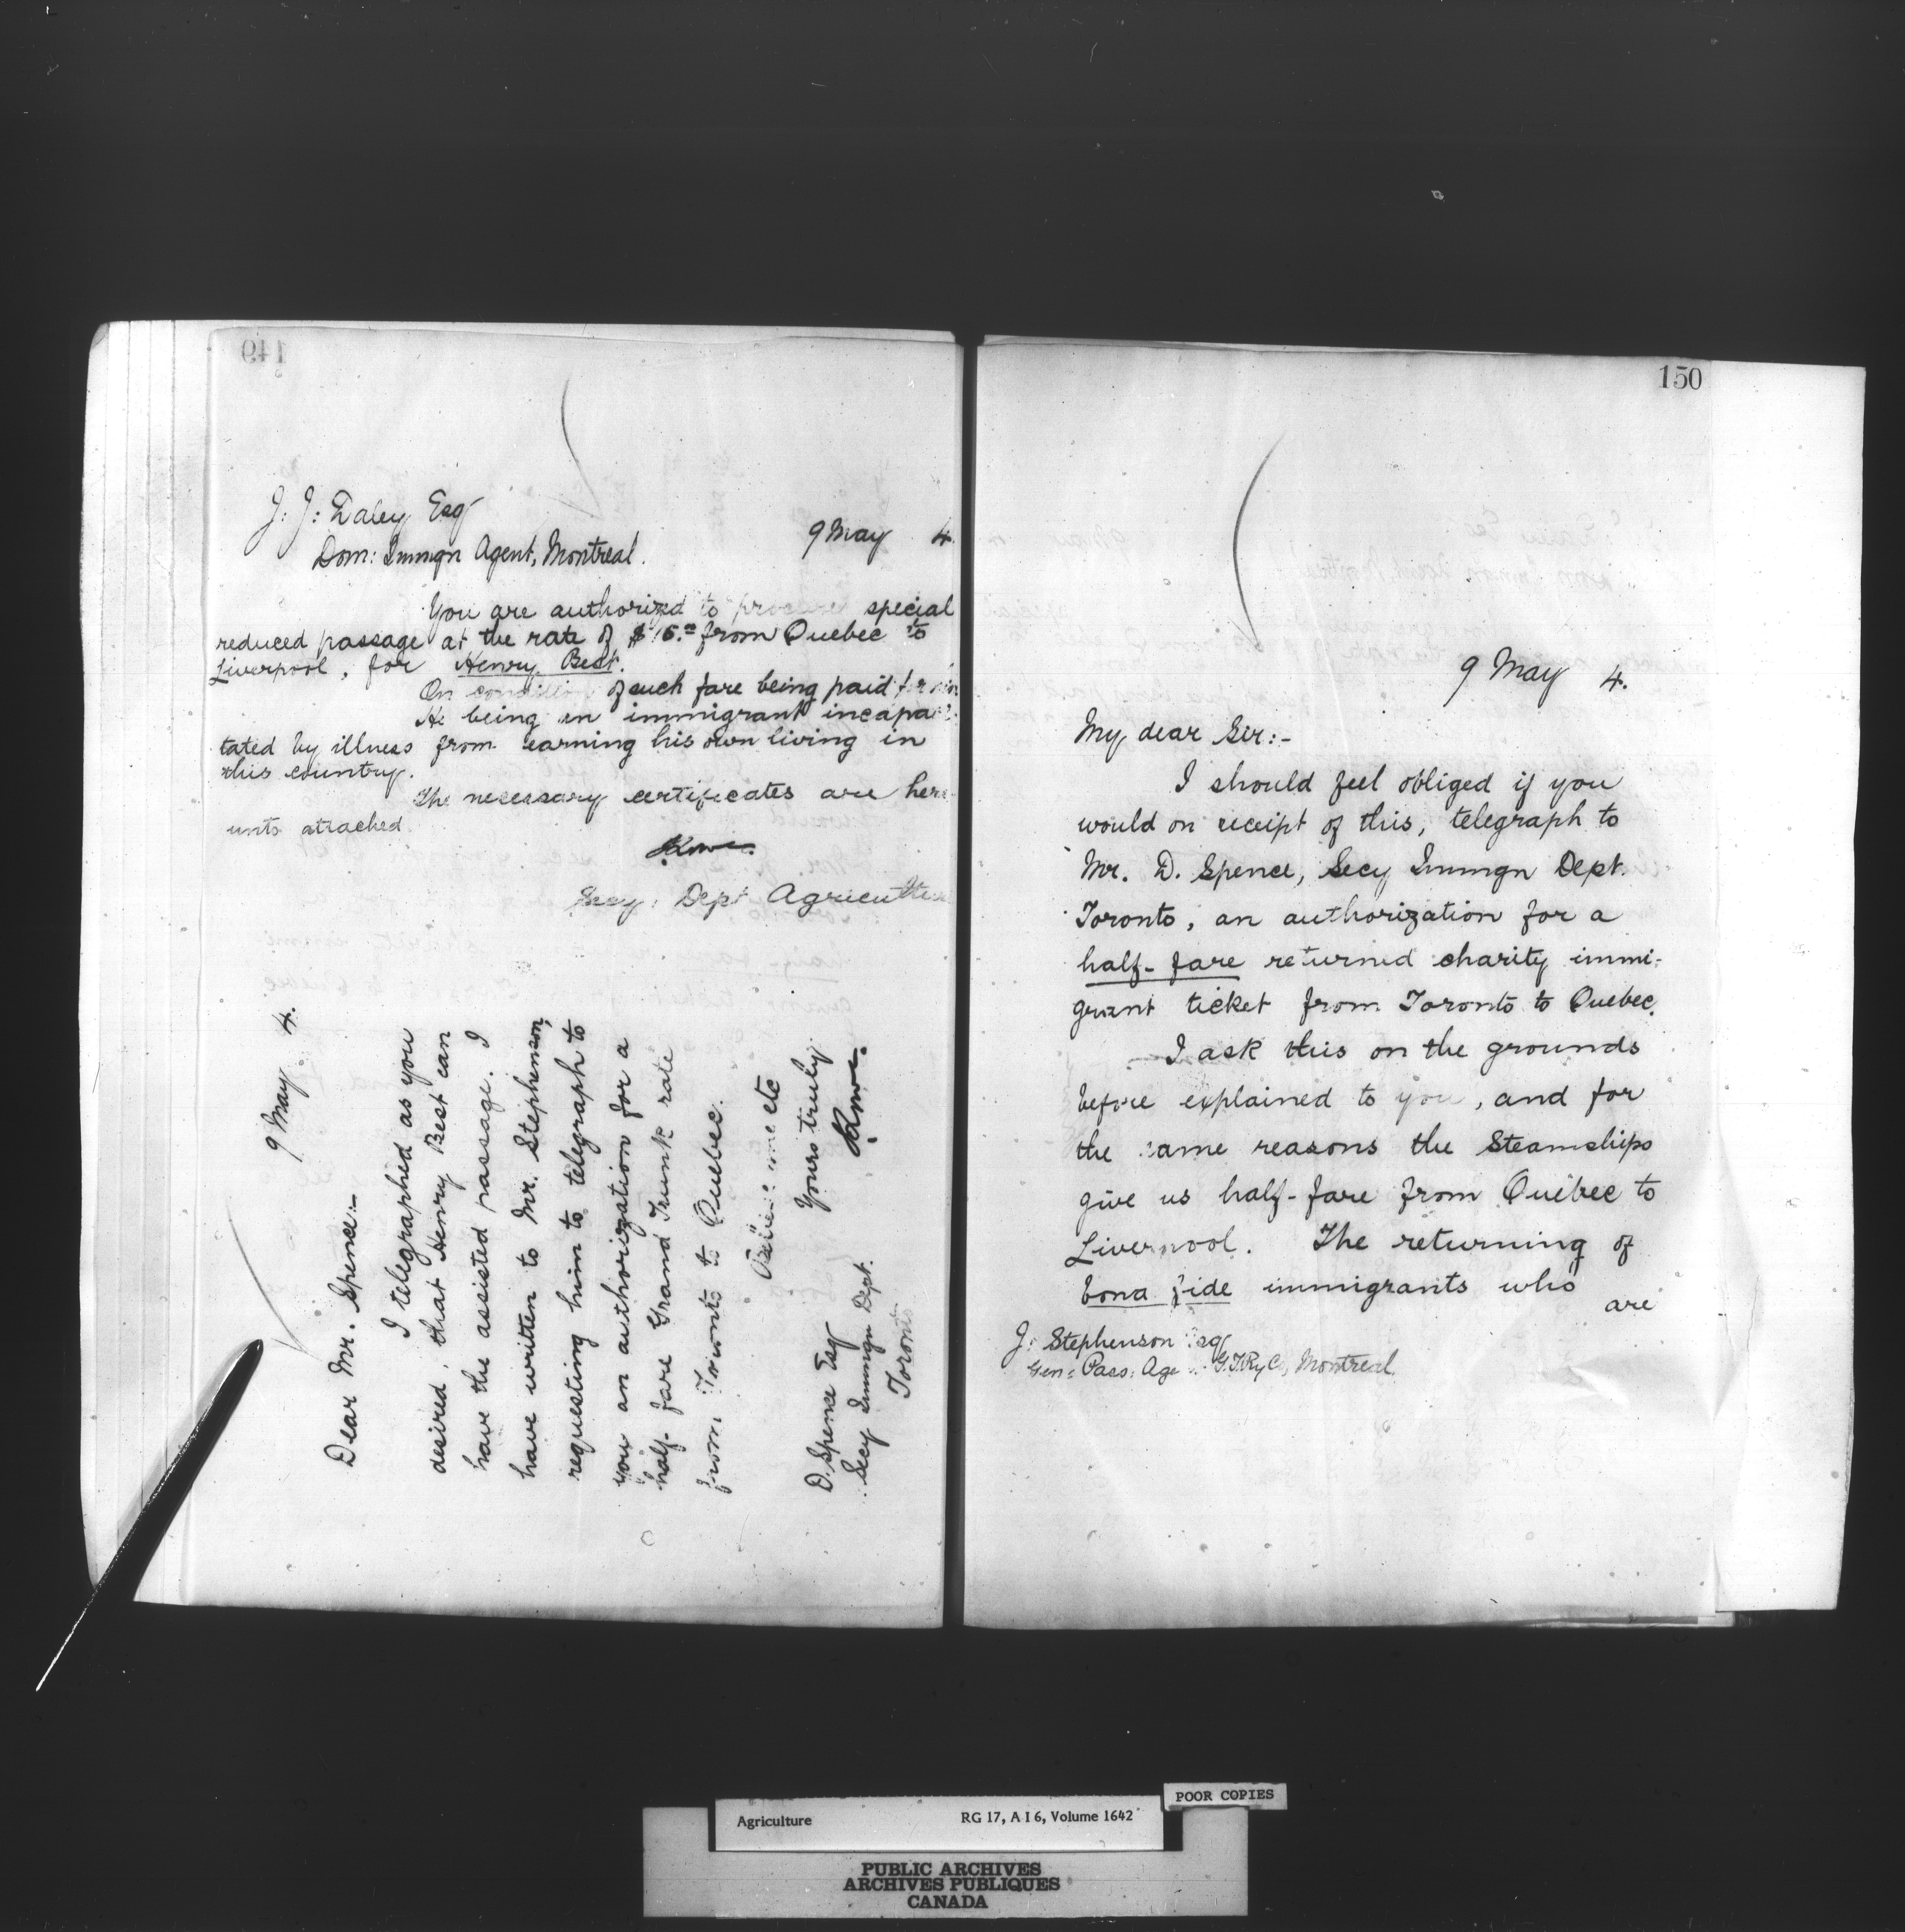 149
J. J. Daley Esq
9 May 4.
Dom: Immgn Agent, Montreal.
You are authorized to procure special
reduced passage at the rate of $15.00 from Quebec to
Liverpool, for Henry Best.
On condition of such fare being paid for him
He being an immigrant incapaci-
tated by illness from earning his own living in
this country.
The necessary certificates are here-
unto attached
Secy: Dept Agriculture
9 May 4.
Dear Mr. Spence:-
I telegraphed as you
desired, that Henry Best can
have the assisted passage. I
have written to Mr. Stephenson,
requesting him to telegraph to
you an authorization for a
half-fare Grand Trunk rate
from Toronto to Quebec.
Believe me etc
Yours truly
D. Spence Esq
Secy Immgn Dept.
Toronto
150
9 May 4.
My dear Sir:-
I should feel obliged if you
would on receipt of this, telegraph to
Mr. D. Spence, Secy Immgn Dept.
Toronto, an authorization for a
half-fare returned charity immi-
grant ticket from Toronto to Quebec.
I ask this on the grounds
before explained to you, and for
the same reasons the Steamships
give us half-fare from Quebec to
Liverpool. The returning of
bona fide immigrants who
are
J. Stephenson Esq
Gen: Pass: Age G.T.Ry Co, Montreal.
POOR COPIES
Agriculture RG 17, A I 6, Volume 1642
PUBLIC ARCHIVES
ARCHIVES PUBLIQUES
CANADA